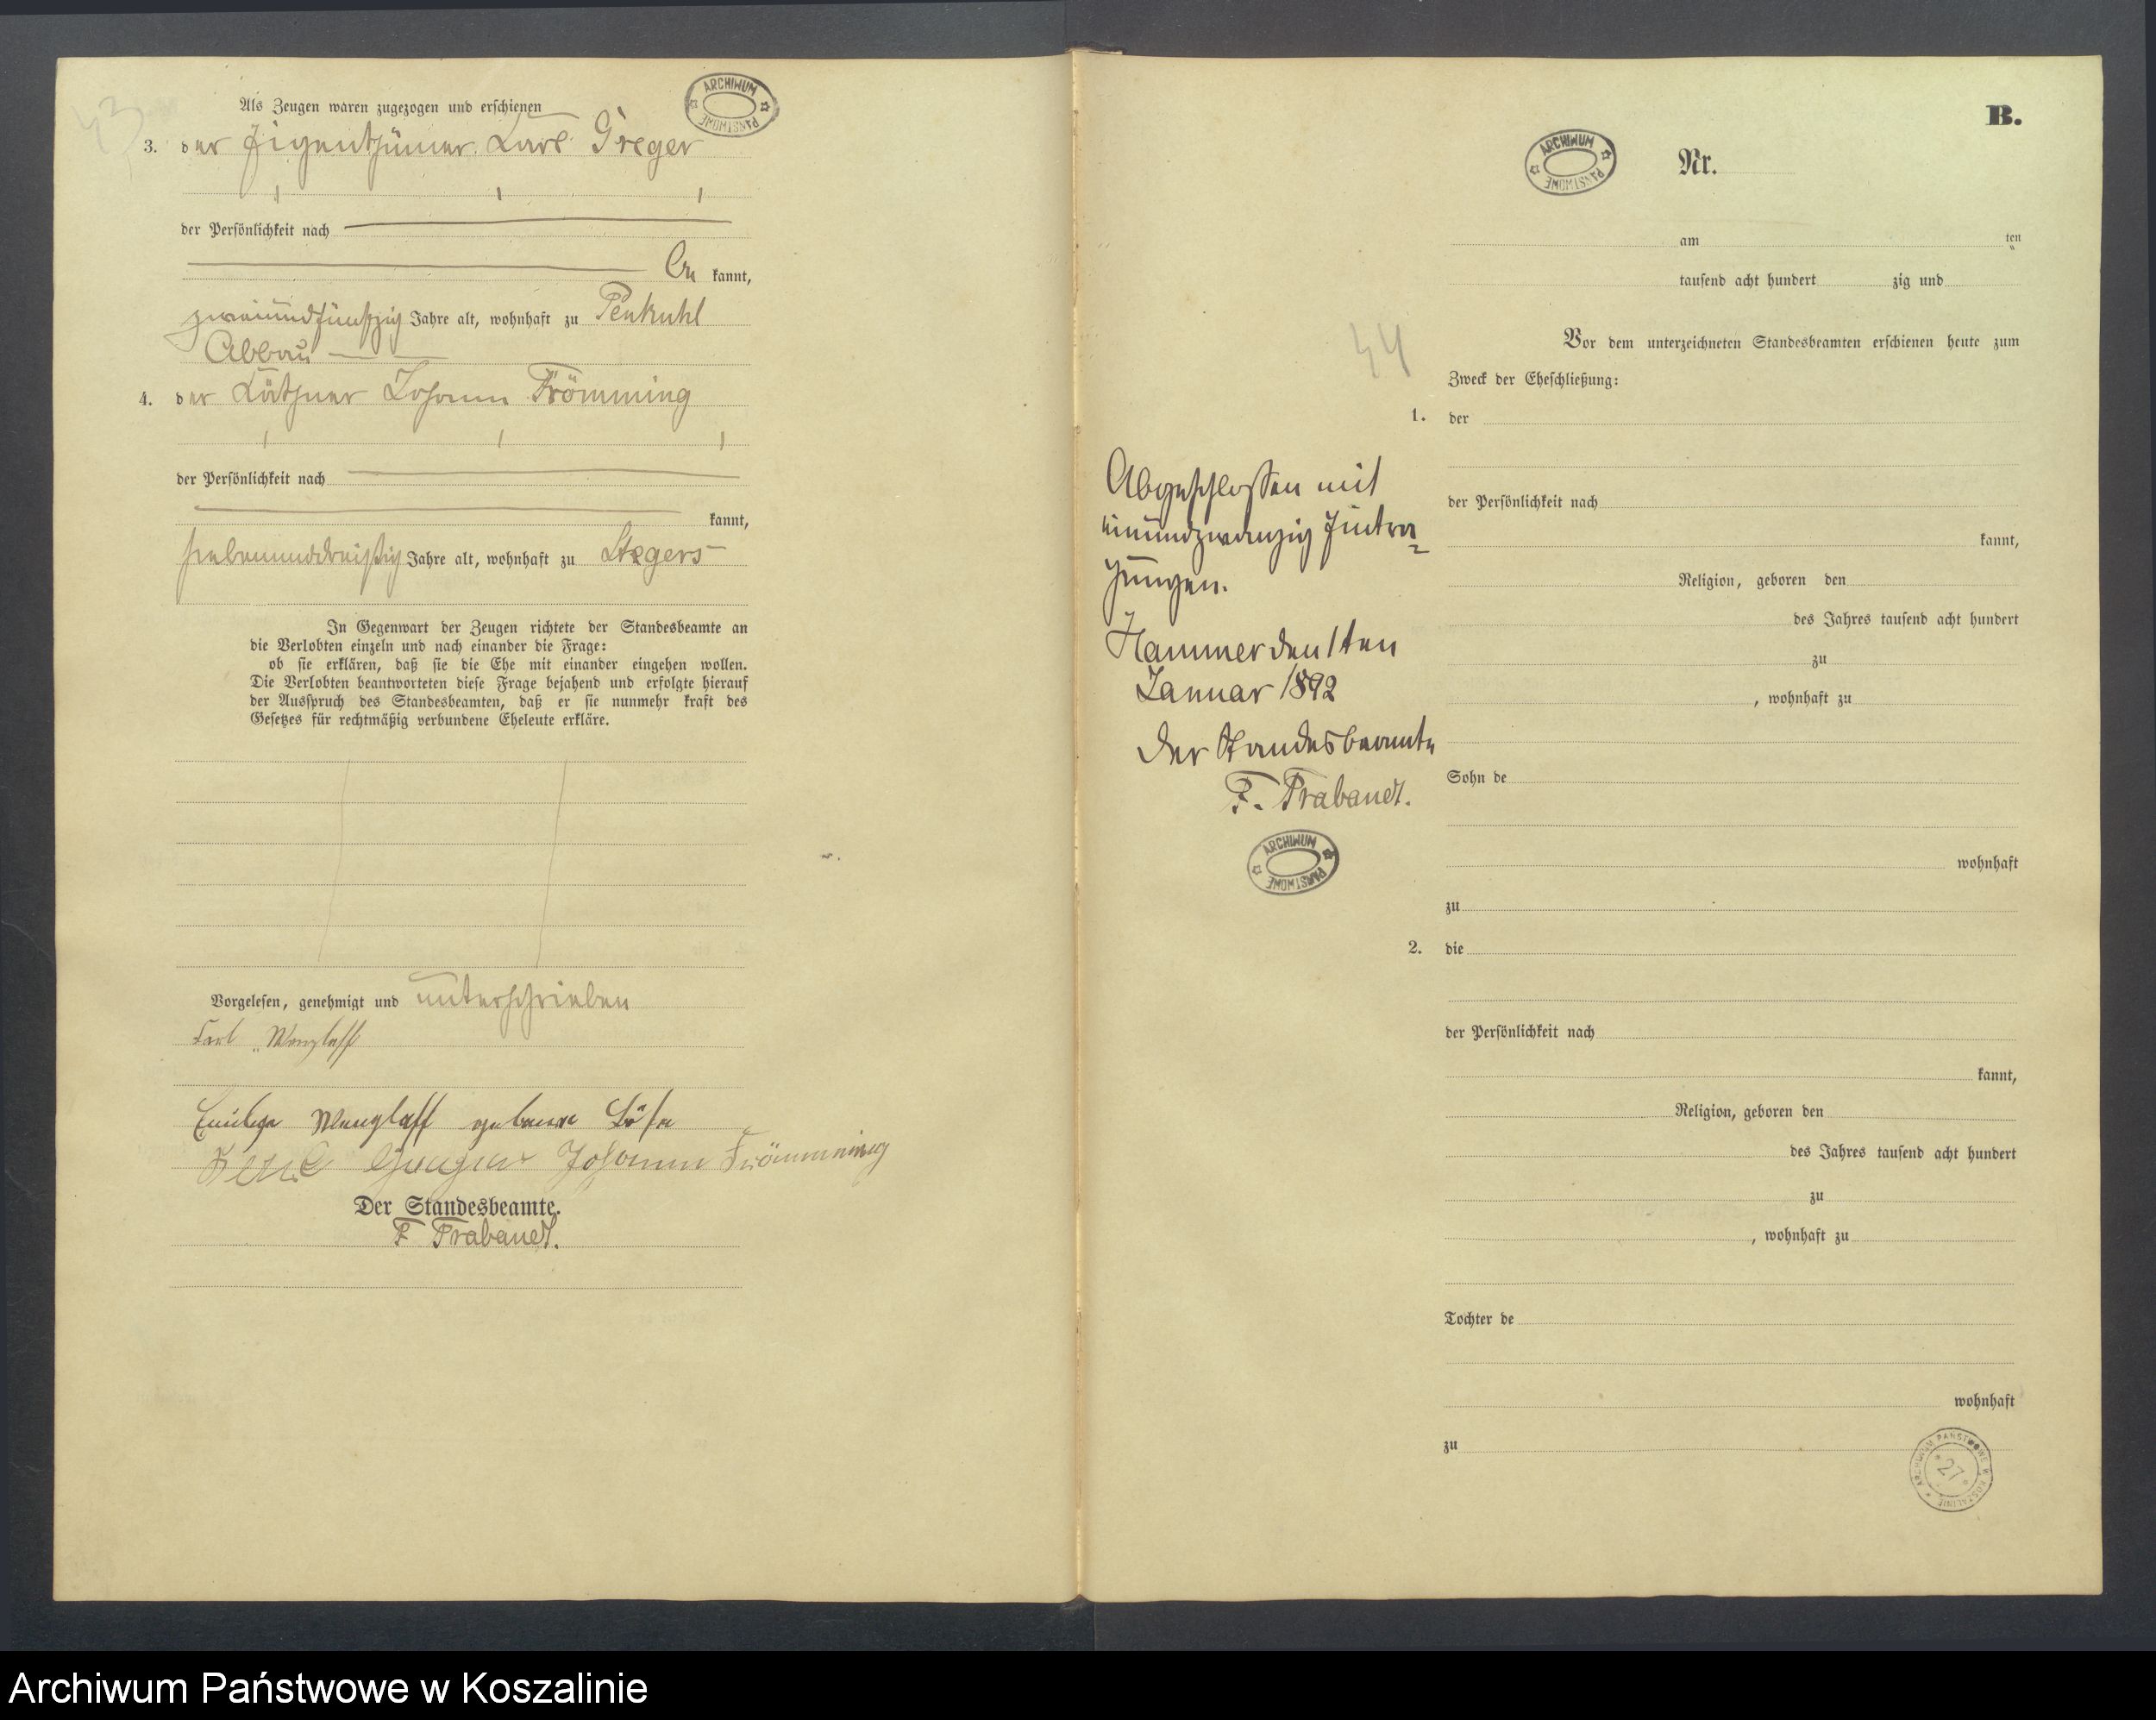 43
ARCHIWUM PAŃSTWOWE
Als Zeugen waren zugezogen und erschienen
3. der Eigenthümer Karl Greger
der Persönlichkeit nach
be kannt,
zweiundfünfzig Jahre alt, wohnhaft zu Penkuhl
Abbau
4. der Käthner Johann Frömming
der Persönlichkeit nach
kannt,
siebenunddreißig Jahre alt, wohnhaft zu Stegers
In Gegenwart der Zeugen richtete der Standesbeamte an
die Verlobten einzeln und nach einander die Frage:
ob sie erklären, daß sie die Ehe mit einander eingehen wollen.
Die Verlobten beantworteten diese Frage bejahend und erfolgte hierauf
der Ausspruch des Standesbeamten, daß er sie nunmehr kraft des
Gesetzes für rechtmäßig verbundene Eheleute erkläre.
Vorgelesen, genehmigt und unterschrieben
Karl Wenzlaff
Wenzlaff geborne
Johann Frömmning
Der Standesbeamte.
F Trabandt.
B.
ARCHIWUM PAŃSTWOWE
Nr.
am ten
tausend acht hundert zig und
44
Vor dem unterzeichneten Standesbeamten erschienen heute zum
Zweck der Eheschließung:
1. der
Abgeschlossen mit
einundzwanzig Eintra-
gungen.
Hammer den 1ten
Januar 1892
Der Standesbeamte
F. Trabandt.
ARCHIWUM PAŃSTWOWE
der Persönlichkeit nach
kannt,
Religion, geboren den
des Jahres tausend acht hundert
zu
, wohnhaft zu
Sohn de
wohnhaft
zu
2. die
der Persönlichkeit nach
kannt,
Religion, geboren den
des Jahres tausend acht hundert
zu
, wohnhaft zu
Tochter de
wohnhaft
zu
ARCHIWUM PAŃSTWOWE W KOSZALINIE
27
Archiwum Państwowe w Koszalinie